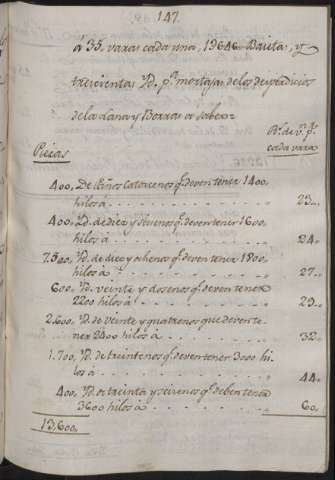 147.
á 35. varas cada una, 19646 Baieta, y
trescientas Yd. pª mortajas de los desperdicios
de la Lana y Borras a saber=
Rs. de v.n pr.
Piezas
cada vara
400, De Paños Catorcenos q.e deven tener 1400
hilos á 23..
400. Yd. de diez y seisenos q.e deven tener 1600.
hilos á 24..
7.500. Yd. de diez y ochenos q.e deven tener 1800
hilos á 27..
600. Yd. veinte y dosenos q.e deven tener
2200 hilos á 29..
2.600. Yd. de veinte y quatrenos que deven te-
ner 2400 hilos á 32..
1.700. Yd. de treintenos q.e deven tener 3000 hi-
los á 44..
400 Yd. de treinta y seisenos q.e deben tener
3600 hilos á 60.
13,600.